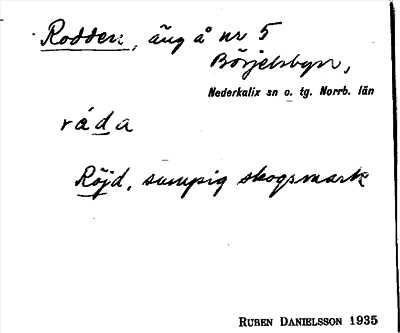 Rodden, äng å nr 5
Börjelsbyn,
Nederkalix sn o. tg. Norrb. län
råda
Röjd, sumpig skogsmark
RUBEN DANIELSSON 1935